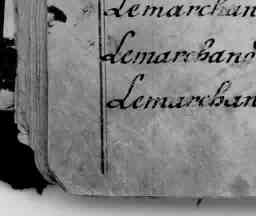 Lemarchan
Lemarchand
Lemarchan